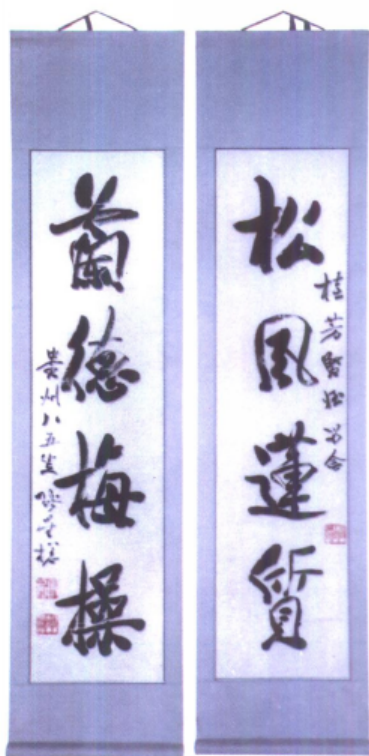 松風蓮質
桂芳賢留念
蘭德梅操
貴州八五叟